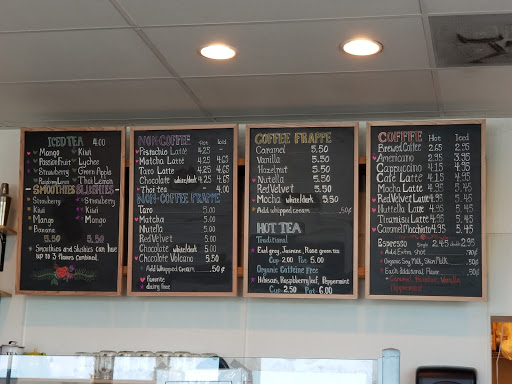 ICED TEA 4.00
Mango Kiwi
Passion Fruit Lychee
Strawberry Green Apple
Thai Lemon
SMOOTHIES SLUSHIES
Strawberry Strawberry
Kiwi Kiwi
Mango Mango
Banana
5.50 5.50
Smoothies and Slushies can have
up to 3 flavors combined.
NON-COFFEE Hot Iced
Pistachio Latte 4.25
Matcha Latte 4.25 4.65
Taro Latte 4.25 4.65
Chocolate white/dark 4.25 4.65
Thai tea
NON-COFFEE FRAPPE
Taro 5.00
Matcha 5.00
Nutella 5.00
Red Velvet 5.00
Chocolate white/dark 5.50
Chocolate Volcano 5.50
Add Whipped cream .50¢
Favorite
dairy free
COFFEE FRAPPE
Caramel 5.50
Vanilla 5.50
Hazelnut 5.50
Nutella 5.50
Red Velvet 5.50
Mocha white/dark 5.50
Add whipped cream .50¢
HOT TEA
Traditional
Earl grey, Jasmine, Rose green tea
Cup 2.00 Pot 5.00
Organic Caffeine Free
Hibiscus, Raspberry leaf, Peppermint
Cup 2.50 Pot 6.00
COFFEE Hot Iced
Brewed Coffee 2.65 2.95
Americano 2.95 3.95
Cappuccino 4.15
Café Latte 4.15 5.45
Mocha Latte 4.15 5.45
Red Velvet Latte 4.15 5.45
Nutella Latte 4.15 5.45
Tiramisu Latte 4.15 5.45
Caramel Macchiato 4.15 5.45
Espresso Single 2.45 double 2.95
Add Extra shot
Organic Soy Milk, Skim Milk .50¢
Each Additional Flavor .50¢